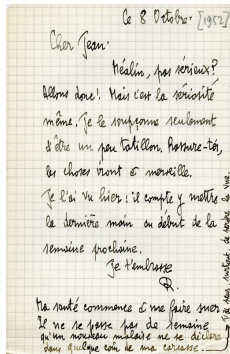 Ce 8 Octobre. [1952]
Cher Jean.
Méalin, pas sérieux?
Allons donc! Mais c'est la sériosité
même. Je le soupçonne seulement
d'être un peu tatillon. Rassure-toi,
les choses vont à merveille.
Je l'ai vu hier: il compte y mettre
la dernière main au début de la
semaine prochaine.
Je t'embrasse
R.
Ma santé commence à me faire suer
Il ne se passe pas de semaine
qu'un nouveau malaise ne se déclare
dans quelque coin de ma carcasse.
de vivre.